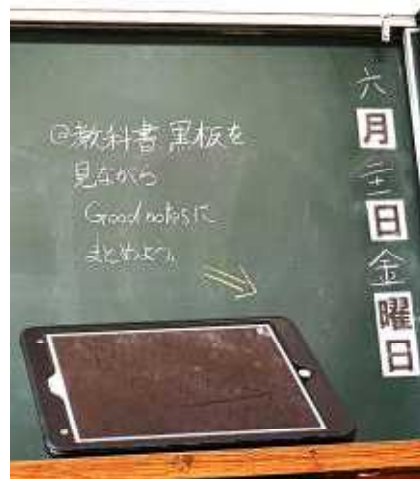 @教科書 黒板を
見ながら
Good notesに
まとめよう。
六
月
二
日
金
曜
日